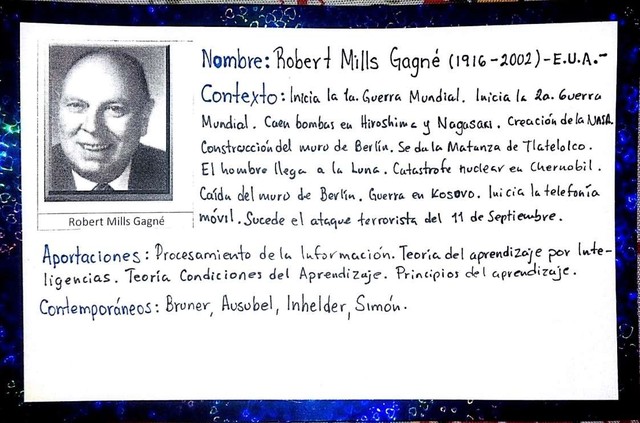 Nombre: Robert Mills Gagné (1916-2002)-E.U.A.-
Contexto: Inicia la 1a. Guerra Mundial. Inicia la 2a. Guerra
Mundial. Caen bombas en Hiroshima y Nagasaki. Creación de la NASA.
Construcción del muro de Berlín. Se da la Matanza de Tlatelolco.
El hombre llega a la Luna. Catastrofe nuclear en Chernobil.
Caída del muro de Berlín. Guerra en Kosovo. Inicia la telefonía
móvil. Sucede el ataque terrorista del 11 de Septiembre.
Robert Mills Gagné
Aportaciones: Procesamiento de la Información. Teoría del aprendizaje por Inte-
ligencias. Teoría Condiciones del Aprendizaje. Principios del aprendizaje.
Contemporáneos: Bruner, Ausubel, Inhelder, Simón.